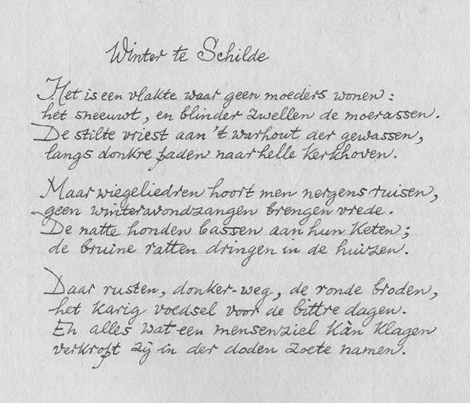 Winter te Schilde
Het is een vlakte waar geen moeders wonen:
het sneeuwt, en blinder zwellen de moerassen.
De stilte vriest aan 't warhout der gewassen,
langs donkre paden naar helle kerkhoven.
Maar wiegeliedren hoort men nergens ruisen,
geen winteravondzangen brengen vrede.
De natte honden bassen aan hun keten;
de bruine ratten dringen in de huizen.
Daar rusten, donker-weg, de ronde broden,
het karig voedsel voor de bittre dagen.
En alles wat een mensenziel kan klagen
verkropt zij in der doden zoete namen.